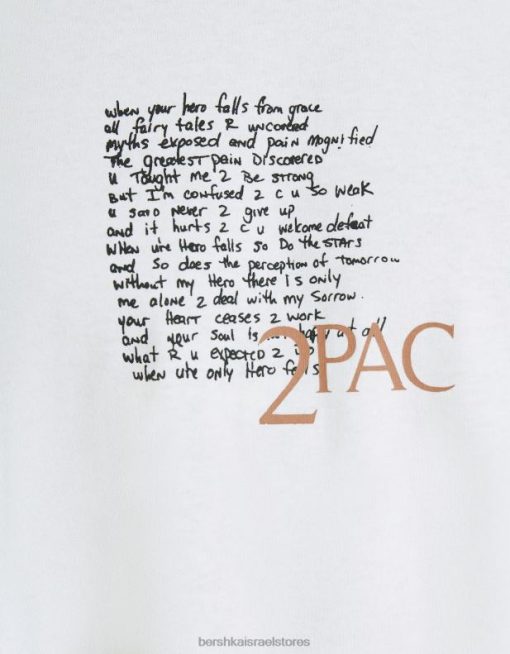 when your hero falls from grace
all fairy tales R uncovered
myths exposed and pain magnified
The greatest pain Discovered
u Taught me 2 Be strong
But I'm confused 2 c u so weak
u said never 2 give up
and it hurts 2 c u welcome defeat
When ure Hero falls so Do the STARS
and so does the perception of tomorrow
without my Hero there is only
me alone 2 deal with my sorrow.
your Heart ceases 2 work
and your soul is not happy at all
what R u expected 2 do
when ure only Hero falls
2PAC
bershkaisraelstores